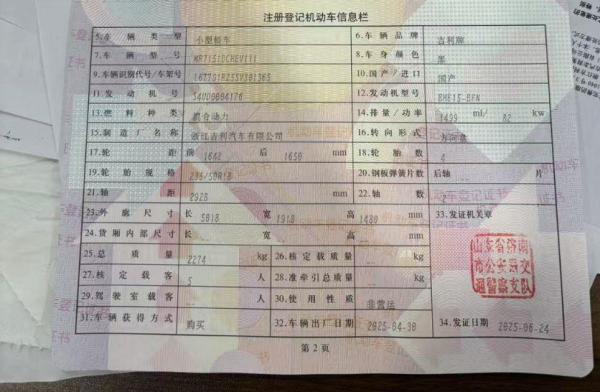 注册登记机动车信息栏
5.车辆类型 小型轿车 6.车辆品牌 吉利牌
7.车辆型号 8.车身颜色 黑
9.车辆识别代号/车架号 10.国产/进口 国产
11.发动机号 12.发动机型号 BHE15-BFN
13.燃料种类 混合动力 14.排量/功率 1499 ml/ 82 kw
15.制造厂名称 浙江吉利汽车有限公司 16.转向形式 方向盘
17.轮距 前 1642 后 1650 mm 18.轮胎数 4
19.轮胎规格 235/50R18 20.钢板弹簧片数 后轴 片
21.轴距 2928 mm 22.轴数 2
23.外廓尺寸 长 5018 宽 1918 高 1480 mm 33.发证机关章
24.货厢内部尺寸 长 宽 高 mm
25.总质量 2274 kg 26.核定载质量 kg
27.核定载客 5 人 28.准牵引总质量 kg
29.驾驶室载客 人 30.使用性质 非营运
31.车辆获得方式 购买 32.车辆出厂日期 2025-04-30 34.发证日期 2025-06-24
山东省济南
市公安局交
通警察支队
第2页